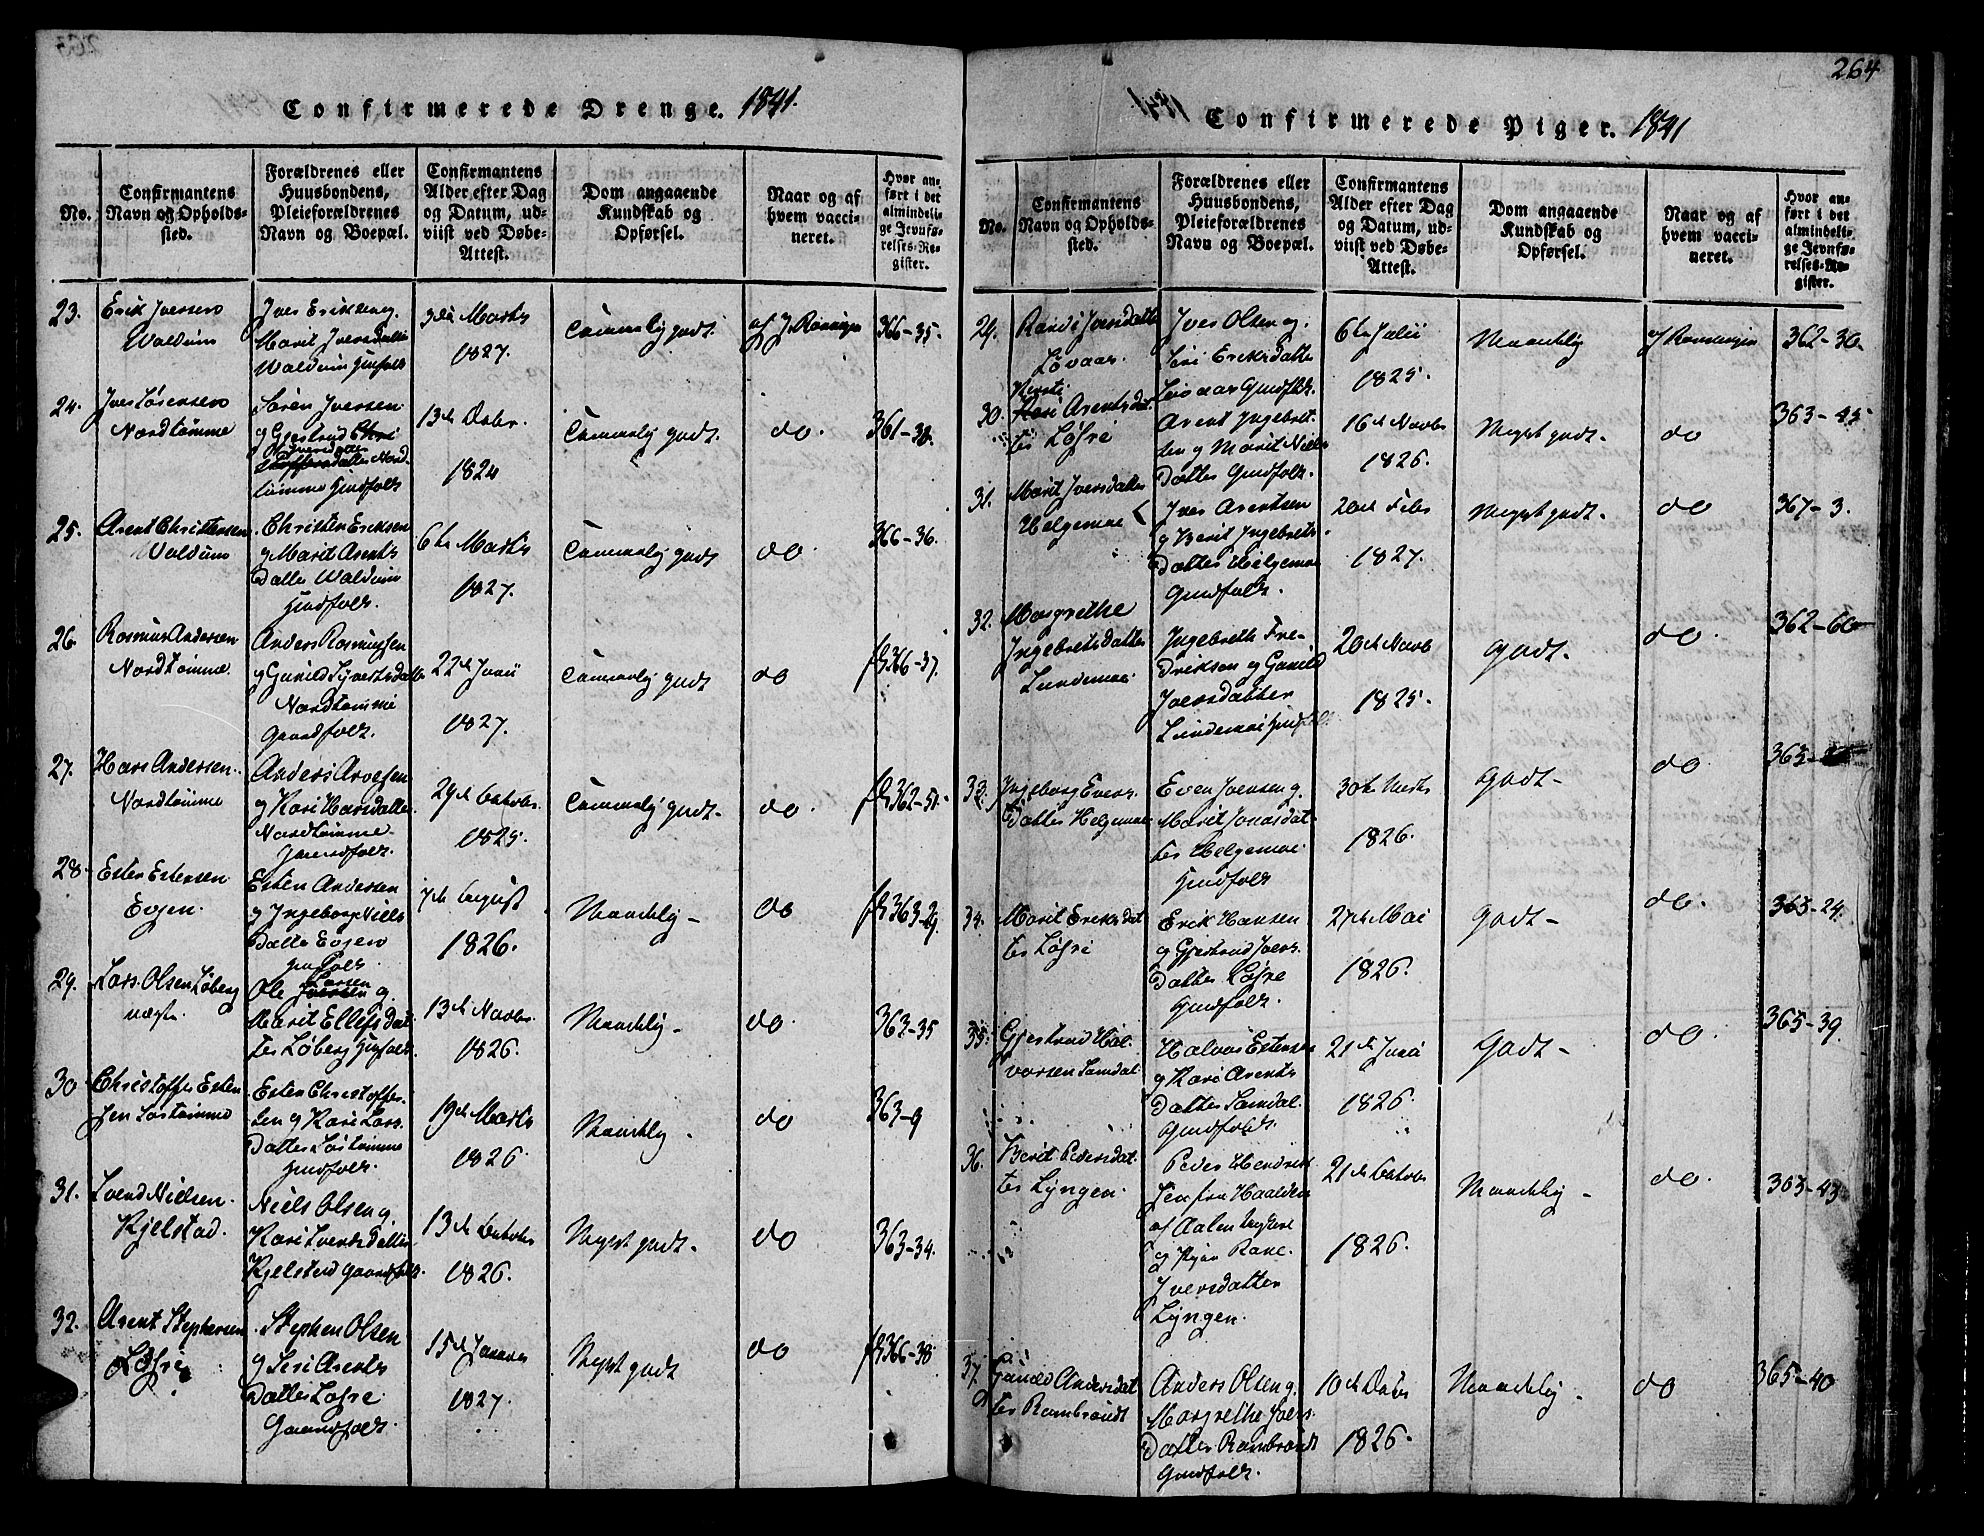 264
Confirmerede Drenge. 1841.
No.
Confirmantens
Navn og Opholds-
sted.
Forældrenes eller
Huusbondens,
Pleieforældrenes
Navn og Boepæl.
Confirmantens
Alder efter Dag
og Datum, ud-
viist ved Døbe-
Attest.
Dom angaaende
Kundskab og
Opførsel.
Naar og af
hvem vacci-
neret.
Hvor an-
ført i det
almindeli-
ge Jevnfø-
relses-Re-
gister.
23.
Erik Iversen
Waldum
Iver Eriksen og
Marit Iversdatter
Waldum
3die Marts
1827.
Temmelig godt.
af J. Ramsøyen
366-35.
24.
Iver Sørensen
Nordtømme
Søren Iversen
og Gjertrud
Iversdatter Nord-
tømme Gmdfolk
13de Decbr.
1824
Temmelig godt.
do.
361-38.
25.
Arent Christensen
Waldum
Christen Eriksen
og Marit Arents
Datter Waldum
Gmdfolk.
6te Marts
1827.
Temmelig godt
do.
366-36.
26.
Rasmus Andersen
Nordtømme.
Anders Rasmussen
og Gunild Syvertsdatter
Nordtømme
Gaardfolk.
22de Junii
1827.
Temmelig godt
do
366-37.
27.
Hans Andersen
Nordtømme
Anders Arvesen
og Kari Hansdatter
Nordtømme
Gaardfolk.
29de Octobr.
1825.
Temmelig godt.
do.
362-51.
28.
Esten Estensen
Evjen.
Esten Andersen
og Ingeborg Niels
Datter Evjen
Gmdfolk.
7de August
1826.
Maadelig -
do
363-29.
29.
Lars Olsen Løberg
Ole Larsen og
Marit Ellefs Dat-
ter Løberg
13de Novbr.
1826.
Maadelig -
do.
363-35
30.
Christoffer Esten-
sen Løstømme
Esten Christoffer-
sen og Kari Lars.
Datter Løstømme
Gmdfolk.
19de Marts
1826.
Maadelig.
do
363-9
31.
Svend Nielsen
Kjelstad.
Niels Olsen og
Kari Svends Datter
Kjelstad Gaardfolk.
13de Octobr
1826.
Meget godt.
do
363-34.
32.
Arent Stephensen
Løhre
Stephen Olsen
og Seri Arents
Datter Løhre
Gaardfolk.
15de Januar
1827.
Meget godt
do
366-38
Confirmerede Piger. 1841
No.
Confirmantens
Navn og Opholds-
sted.
Forældrenes eller
Huusbondens,
Pleieforældrenes
Navn og Boepæl.
Confirmantens
Alder efter Dag
og Datum, ud-
viist ved Døbe-
Attest.
Dom angaaende
Kundskab og
Opførsel.
Naar og af
hvem vacci-
neret.
Hvor an-
ført i det
almindeli-
ge Jevnfø-
relses-Re-
gister.
29.
Randi Iversdatter
Løvaas.
Iver Olsen og
Siri Eriksdatter
Løvaas Gmdfolk.
6te Julii
1825.
Maadelig
af Ramsøyen
362-30.
30.
Kersti
Arentsdat-
ter Løhre
Arent Ingebret-
sen og Marit Niels
Datter Gmdfolk.
16de Novbr
1826.
Meget godt.
do
363-45
31.
Marit Iversdatter
Helgemoe
Iver Arentsen
og Berit Ingebrets-
Datter Helgemoe
Gmdfolk.
20de Febr
1827.
Meget godt.
do
367-3.
32.
Margrethe
Ingebretsdatter
Lundemoe
Ingebreth Fre-
driksen og Gunild
Iversdatter
Lundemoe Gmdfolk
20de Novb
1825.
godt.
do.
362-60
33.
Ingeborg Evens.
Datter Helgemoe
Even Jonsen og
Marit Jonasdat-
ter Helgemoe
Gmdfolk
30te Marts
1826.
godt -
do.
363-
34.
Marit Eriksdat-
ter Løhre
Erik Hansen
og Gjertrud Ivers.
Datter Løhre
Gmdfolk.
27de Mai
1826.
godt -
do.
363-24.
35.
Gjertrud Hal-
vorsen Samdal
Halvor Estensen
og Kari Arents
Datter Samdal.
Gmdfolk.
21de Junii
1826.
Godt -
do
365-39.
36.
Berit Pedersdat-
ter Lyngen.
Peder Hendrik-
sen fra Haalden
af Aalen
og Pige Rane.
Iversdatter
Lyngen.
21de Octobr
1826.
Maadelig -
do.
363-43
37.
Gunild Andersdat-
ter Rambraudt
Anders Olsen og
Margrethe Ivers
Datter Rambraudt
Gmdfolk.
10de Decbr
1826.
Maadelig -
do
365-40